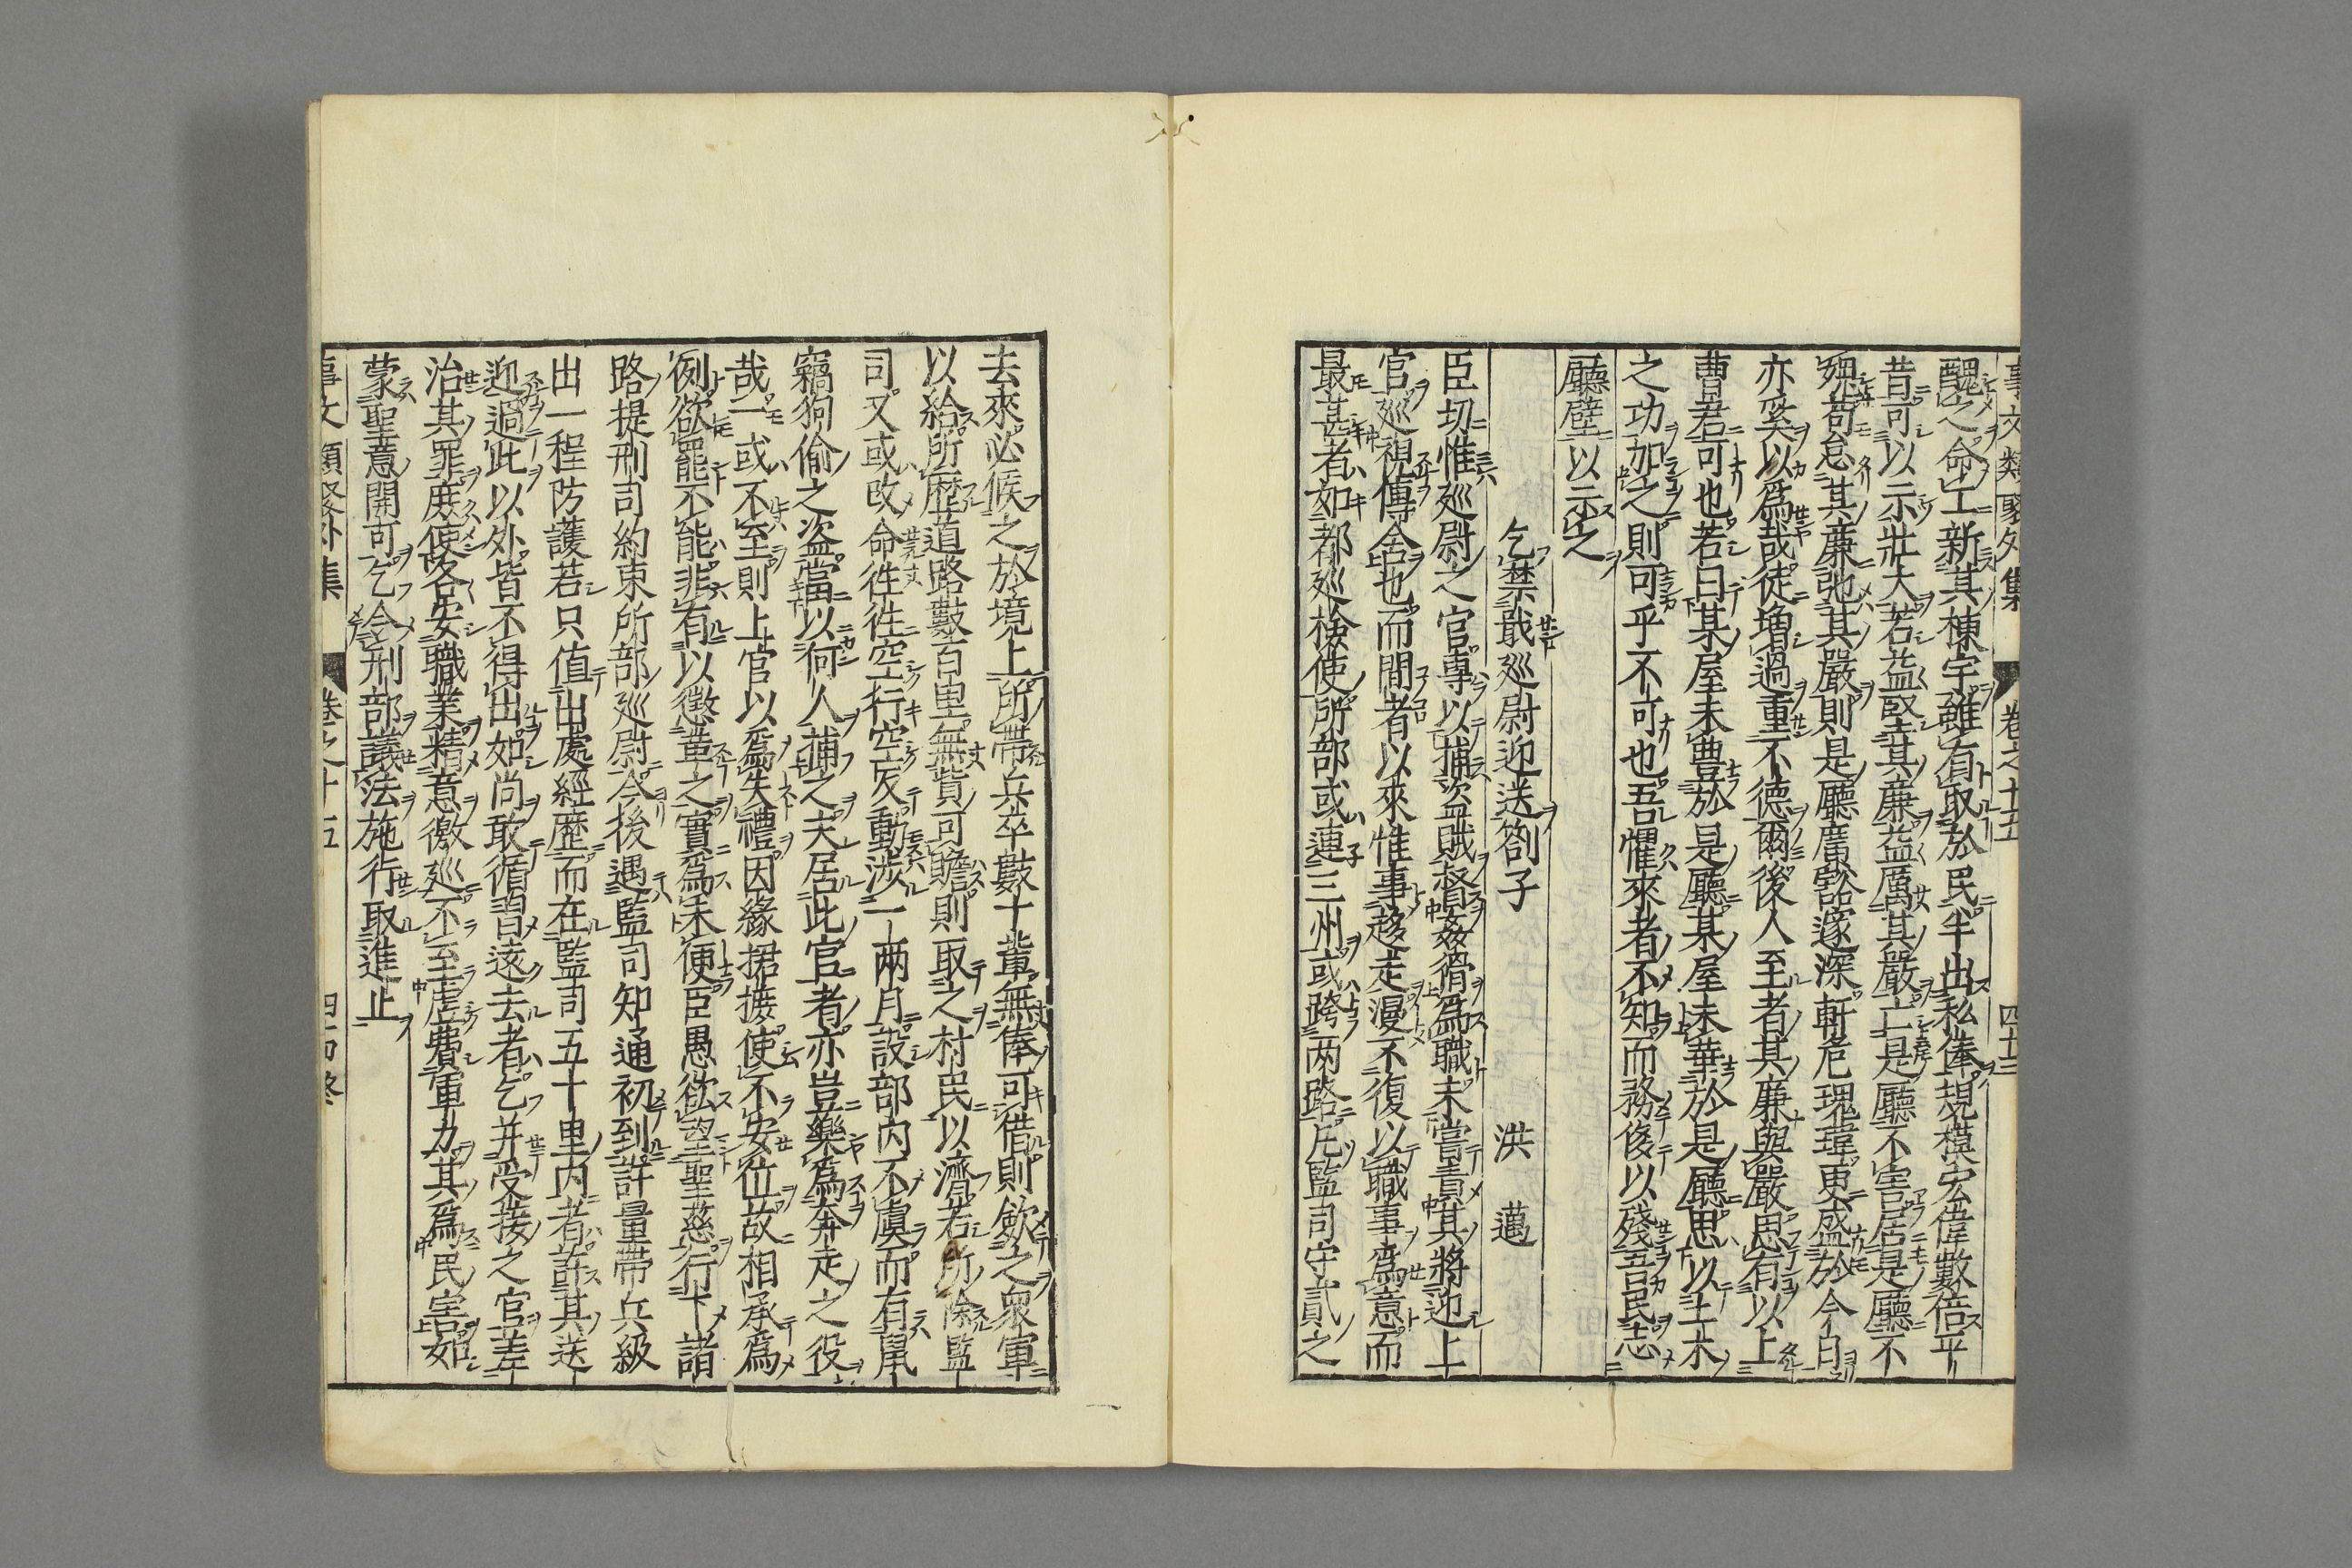 事文類聚外集 卷之十五 四十三
醜之命工新其棟宇雖有取於民半出私俸規模宏偉數倍乎
昔可以示壯大若益堅其廉益厲其嚴亡是廳不害居是廳不
媿苟怠其廉弛其嚴則是廳廣豁邃深軒危瑰瑋更盛於今日
亦奚以爲哉徒増過重不德爾後人至者其廉與嚴思有以上
曹君可也若曰某屋未豊於是廳某屋未華於是廳思以土木
之功加之則可乎不可也吾懼來者不知而務俊以殘吾民志
廳壁以示之
乞禁戢廵尉迎送劄子 洪邁
臣切惟廵尉之官專以捕盜賊督姦猾爲職未嘗責其將迎上
官廵視傳舍也而間者以來惟事趍走漫不復以職事爲意而
最甚者如都廵檢使所部或連三州或跨两路凡監司守貳之
去來必候之於境上所帶兵卒數十軰無俸可借則歛之衆軍
以給所歴道路數百里無貲可贍則取之村民以濟若所除監
司又或改命徃徃空行空反動渉一两月設部内不虞而有鼠
竊狗偷之盗當以何人捕之夫居此官者亦豈樂爲奔走之役
哉一或不至則上官以爲失禮因緣捃摭使不安位故相承爲
例欲罷不能非有以懲革之實爲未便臣愚欲望聖慈行下諸
路提刑司約束所部廵尉今後遇監司知通初到許量帶兵級
出一程防護若只值出處經歴而在監司五十里内者許其送
迎過此以外皆不得出如尚敢循習遠去者乞并受接之官差
治其罪庶使各安職業精意徼廵不至虚費軍力其爲民害如
蒙聖意開可乞令刑部議法施行取進止
事文類聚外集 卷之十五 四十四終